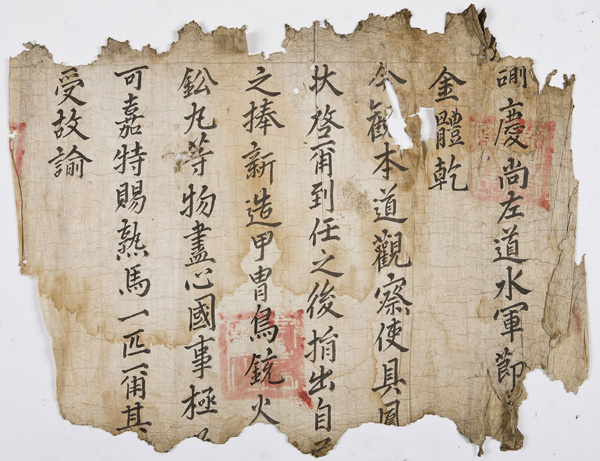 慶尚左道水軍節
金體乾
今觀本道觀察使具
狀啓爾到任之後捐出自
之捧新造甲冑鳥銃火
鈆丸等物盡心國事極
可嘉特賜熟馬一匹爾其
受故諭